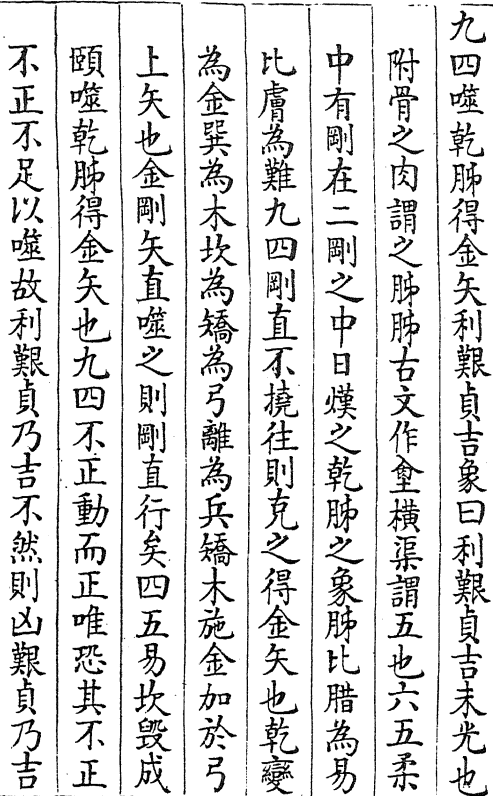 九四噬乾胏得金矢利艱貞吉象曰利艱貞吉未光也
附骨之肉謂之胏胏古文作𠧙橫渠謂五也六五柔
中有剛在二剛之中日熯之乾胏之象胏比腊為易
比膚為難九四剛直不撓往則克之得金矢也乾變
為金巽為木坎為矯為弓離為兵矯木施金加於弓
上矢也金剛矢直噬之則剛直行矣四五易坎毀成
頤噬乾胏得金矢也九四不正動而正唯恐其不正
不正不足以噬故利艱貞乃吉不然則凶艱貞乃吉